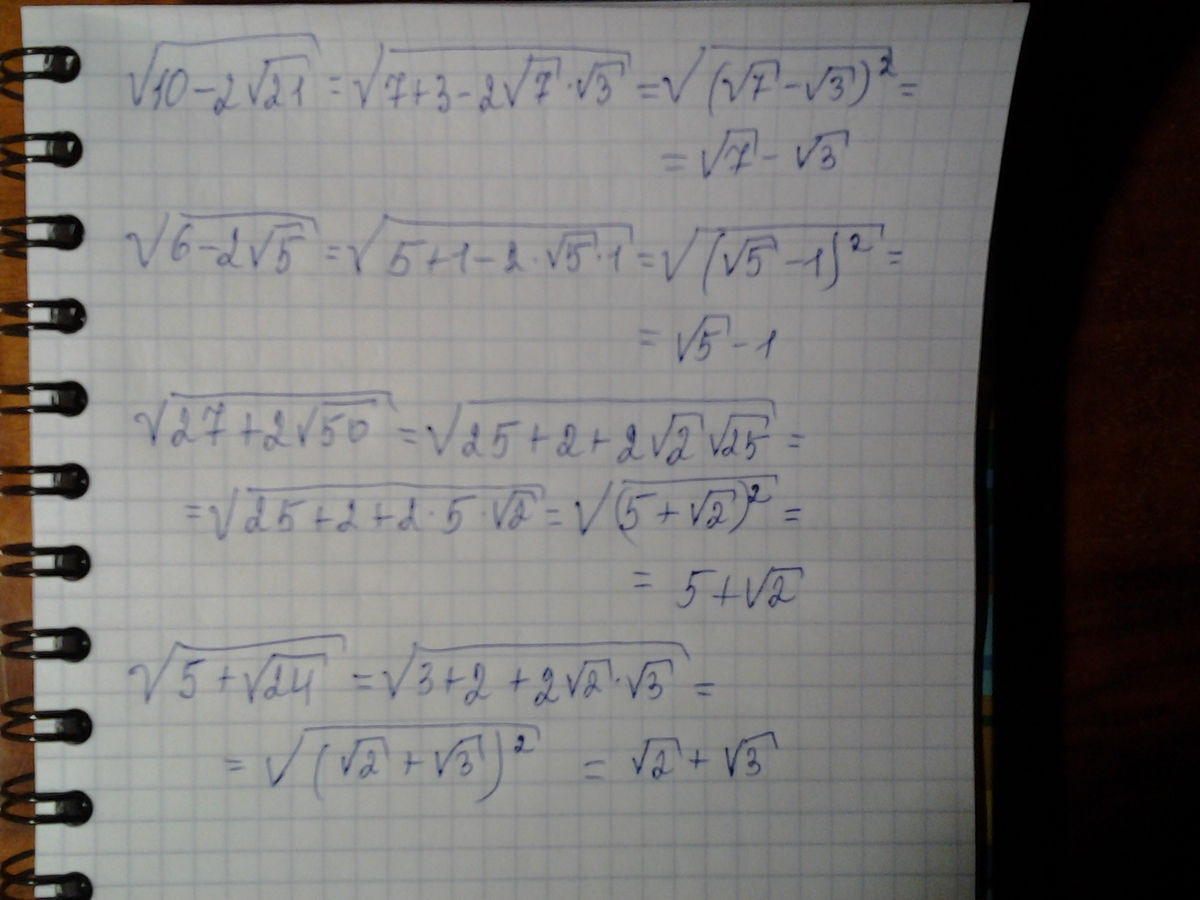 √(10-2√21) = √(7+3-2√7·√3) = √((√7-√3)²) =
= √7 - √3
√(6-2√5) = √(5+1-2·√5·1) = √((√5-1)²) =
= √5 - 1
√(27+2√50) = √(25+2+2√2√25) =
= √(25+2+2·5·√2) = √((5+√2)²) =
= 5+√2
√(5+√24) = √(3+2+2√2·√3) =
= √((√2+√3)²) = √2+√3